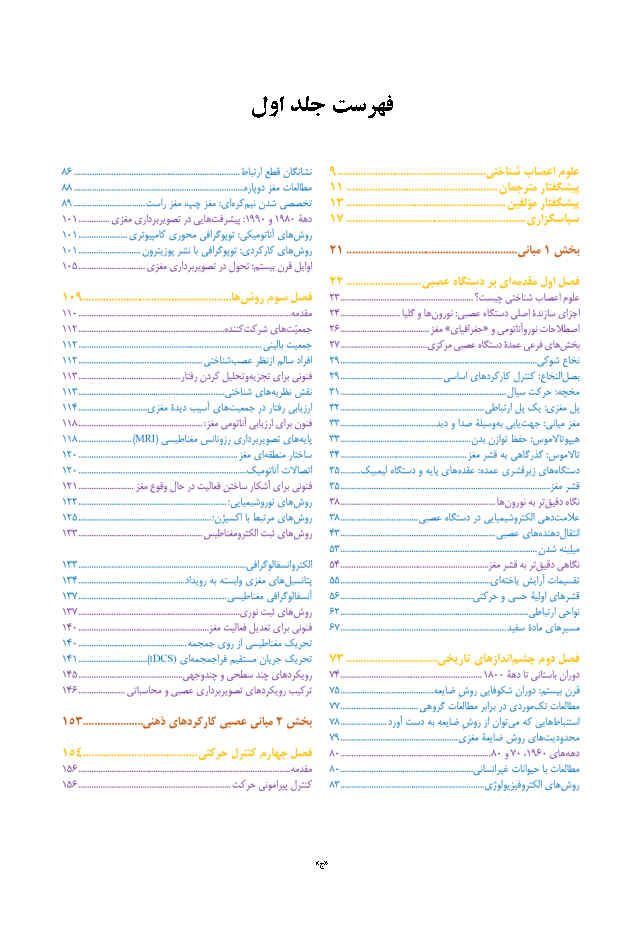 فهرست جلد اول
علوم اعصاب شناختی ۹
پیشگفتار مترجمان ۱۱
پیشگفتار مؤلفین ۱۳
سپاسگزاری ۱۷
بخش ۱ مبانی ۲۱
فصل اول مقدمه‌ای بر دستگاه عصبی ۲۲
علوم اعصاب شناختی چیست؟ ۲۳
اجزای سازندهٔ اصلی دستگاه عصبی: نورون‌ها و گلیا ۲۴
اصطلاحات نوروآناتومی و «جغرافیای» مغز ۲۶
بخش‌های فرعی عمدهٔ دستگاه عصبی مرکزی ۲۷
نخاع شوکی ۲۹
بصل‌النخاع: کنترل کارکردهای اساسی ۲۹
مخچه: حرکت سیال ۳۱
پل مغزی: یک پل ارتباطی ۳۲
مغز میانی: جهت‌یابی به‌وسیلهٔ صدا و دید ۳۳
هیپوتالاموس: حفظ توازن بدن ۳۳
تالاموس: گذرگاهی به قشر مغز ۳۴
دستگاه‌های زیرقشری عمده: عقده‌های پایه و دستگاه لیمبیک ۳۵
قشر مغز ۳۵
نگاه دقیق‌تر به نورون‌ها ۳۸
علامت‌دهی الکتروشیمیایی در دستگاه عصبی ۳۸
انتقال‌دهنده‌های عصبی ۴۳
میلینه شدن ۵۳
نگاهی دقیق‌تر به قشر مغز ۵۴
تقسیمات آرایش یاخته‌ای ۵۵
قشرهای اولیهٔ حسی و حرکتی ۵۶
نواحی ارتباطی ۶۲
مسیرهای مادهٔ سفید ۶۷
فصل دوم چشم‌اندازهای تاریخی ۷۳
دوران باستانی تا دههٔ ۱۸۰۰ ۷۴
قرن بیستم: دوران شکوفایی روش ضایعه ۷۵
مطالعات تک‌موردی در برابر مطالعات گروهی ۷۷
استنباط‌هایی که می‌توان از روش ضایعه به دست آورد ۷۸
محدودیت‌های روش ضایعهٔ مغزی ۷۹
دهه‌های ۱۹۶۰، ۷۰ و ۸۰ ۸۰
مطالعات با حیوانات غیرانسانی ۸۰
روش‌های الکتروفیزیولوژی ۸۳
نشانگان قطع ارتباط ۸۶
مطالعات مغز دوپاره ۸۸
تخصصی شدن نیم‌کره‌ای: مغز چپ، مغز راست ۸۹
دههٔ ۱۹۸۰ و ۱۹۹۰: پیشرفت‌هایی در تصویربرداری مغزی ۱۰۱
روش‌های آناتومیکی: توپوگرافی محوری کامپیوتری ۱۰۱
روش‌های کارکردی: توپوگرافی با نشر پوزیترون ۱۰۱
اوایل قرن بیستم: تحول در تصویربرداری مغزی ۱۰۵
فصل سوم روش‌ها ۱۰۹
مقدمه ۱۱۰
جمعیّت‌های شرکت‌کننده ۱۱۲
جمعیت بالینی ۱۱۲
افراد سالم ازنظر عصب‌شناختی ۱۱۲
فنونی برای تجزیه‌وتحلیل کردن رفتار ۱۱۳
نقش نظریه‌های شناختی ۱۱۳
ارزیابی رفتار در جمعیت‌های آسیب دیدهٔ مغزی ۱۱۴
فنون برای ارزیابی آناتومی مغز: ۱۱۸
پایه‌های تصویربرداری رزونانس مغناطیسی (MRI) ۱۱۸
ساختار منطقه‌ای مغز ۱۲۰
اتصالات آناتومیک ۱۲۰
فنونی برای آشکار ساختن فعالیت در حال وقوع مغز ۱۲۱
روش‌های نوروشیمیایی: ۱۲۲
روش‌های مرتبط با اکسیژن: ۱۲۵
روش‌های ثبت الکترومغناطیس ۱۳۳
الکتروانسفالوگرافی ۱۳۳
پتانسیل‌های مغزی وابسته به رویداد ۱۳۴
آنسفالوگرافی مغناطیسی ۱۳۷
روش‌های ثبت نوری ۱۳۷
فنونی برای تعدیل فعالیت مغز ۱۴۰
تحریک مغناطیسی از روی جمجمه ۱۴۰
تحریک جریان مستقیم فراجمجمه‌ای (tDCS) ۱۴۱
رویکردهای چند سطحی و چندوجهی ۱۴۵
ترکیب رویکردهای تصویربرداری عصبی و محاسباتی ۱۴۶
بخش ۲ مبانی عصبی کارکردهای ذهنی ۱۵۳
فصل چهارم کنترل حرکتی ۱۵۴
مقدمه ۱۵۶
کنترل پیرامونی حرکت ۱۵۶
«ج»